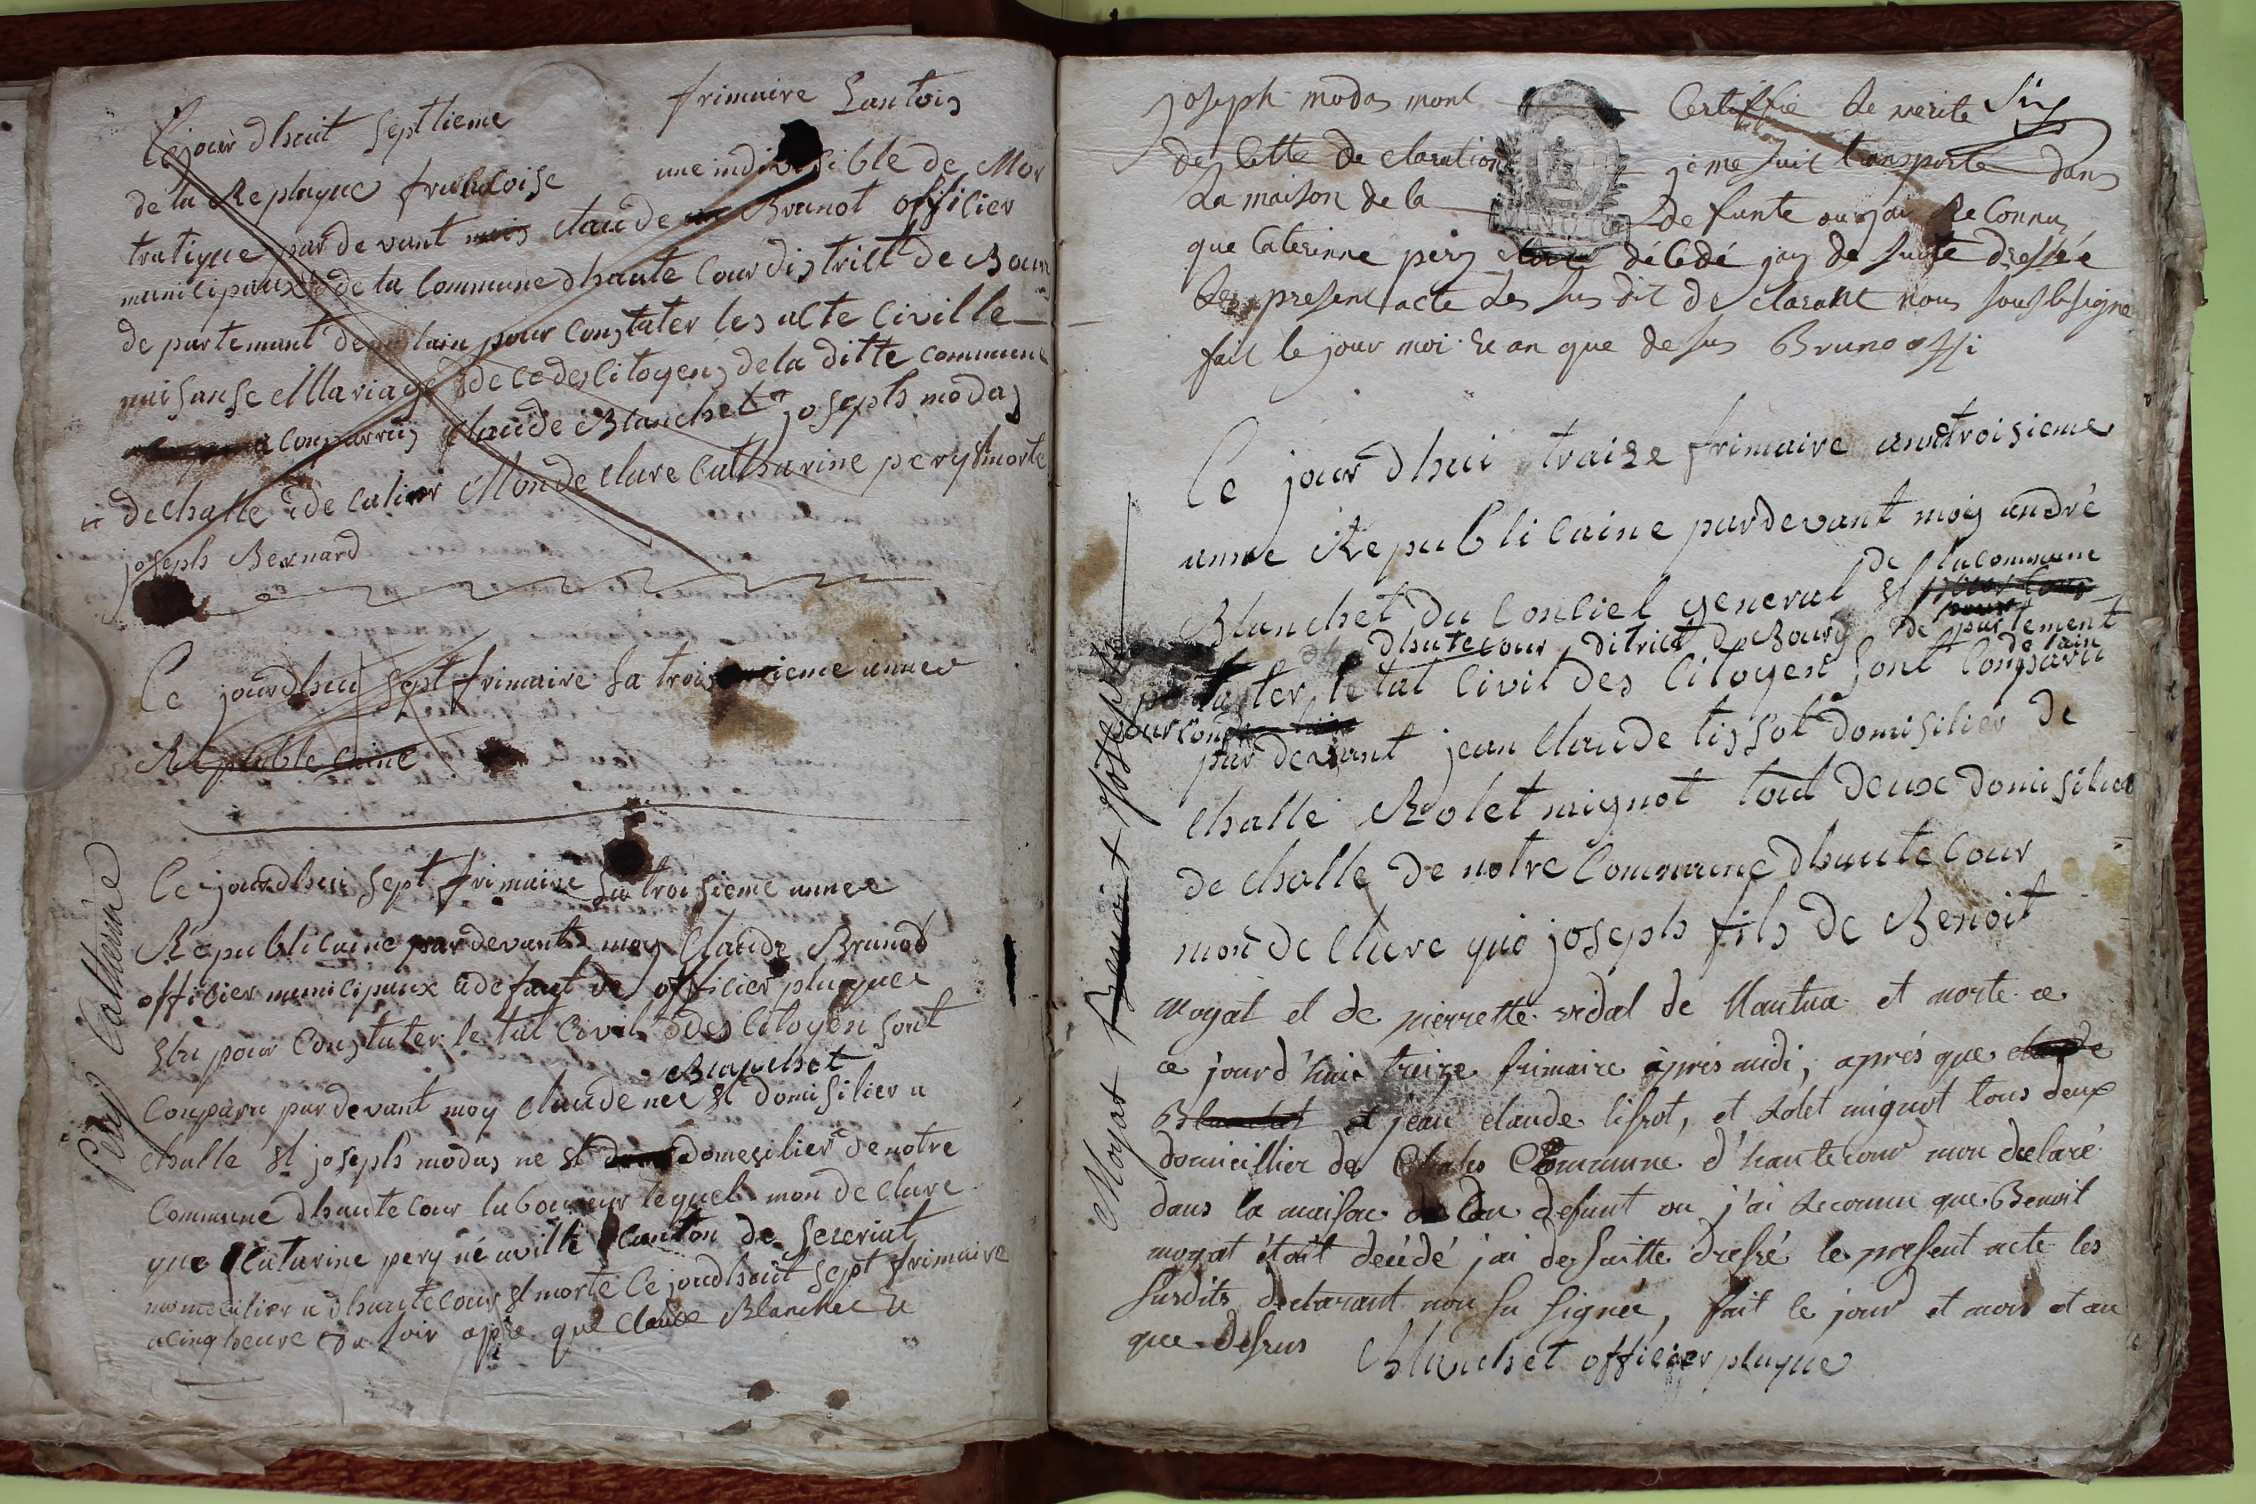 Ce jour dhuit septtieme frimaire Lantois
de la Replique francoise une indivisible de Mor
tratique par de vant mois claude Brunot offilier
municipaux de la Commune dhaute Cour district de Bour
de partemant de lain pour Constater les acte Civille
naisanse et Mariage de ce des Citoyens de la ditte commune
Conparrus Claude Blanchet joseph modas
de challe de calier Mon de clare Catharine pery st morte
joseph Bernard
Ce jourdhui sept frimaire La trois ieme annee
Republi caine
Pery Catherine
Ce jourdhui sept frimaire La troisieme annee
Republicaine pardevant moy Claude Brunod
offilier municipaux a defaut de officier pluque
stu pour Constater le tat Civil des Citoyen sont
Blanchet
Conparu par devant moy claude ne st domisilier a
challe st joseph modas ne st domesilier de notre
Commune dhaute Cour laboureur lequel mon de clare
que Catarine pery né a ville Canton de Sezeriat
momicilier a dhautecour st morte Ce joudhuit sept frimaire
a cinq heure du soir apre que claude Blanchet et
joseph modas mont Certiffié de verite
des Cette de claration je me suit transporté dans
La maison de la de funte ou jai Reconnu
que Caterinne pery décedé jay de suite dressée
Les present acte Les sus dit de clarant nous sousle signe
fait le jour moi et an que desus Bruno offi
Moyat Benoit Joseph
Ce jour dhui traize frimaire ann troisieme
anne Republicaine pardevant moy andré
de la commune
Blanchet du Conciel general st
dhautecour ditrict de Bourg de partement
de lain
ter le tat Civil des Citoyen sont Conparu
pour Cons
par devant jean Claude tissot domisilier de
challe Rolet mignot tout deux domisilier
de challe de notre Commune dhaute Cour
mon de Clare que joseph fils de Benoit
moyat et de pierrette vidal de Nantua et morte ce
ce jourd'hui treize frimaire après midi, après que claude
Blanchet et jean claude tissot, et Rolet mignot tous deux
domicillier de Chales Commune d'hautecour mon declaré
dans la maison du defunt ou j'ai Reconnu que Benoit
moyat étoit decédé j'ai de suitte dressé le present acte les
susdits declarant non su signée, fait le jour et mois et an
que dessus Blanchet officier pluque